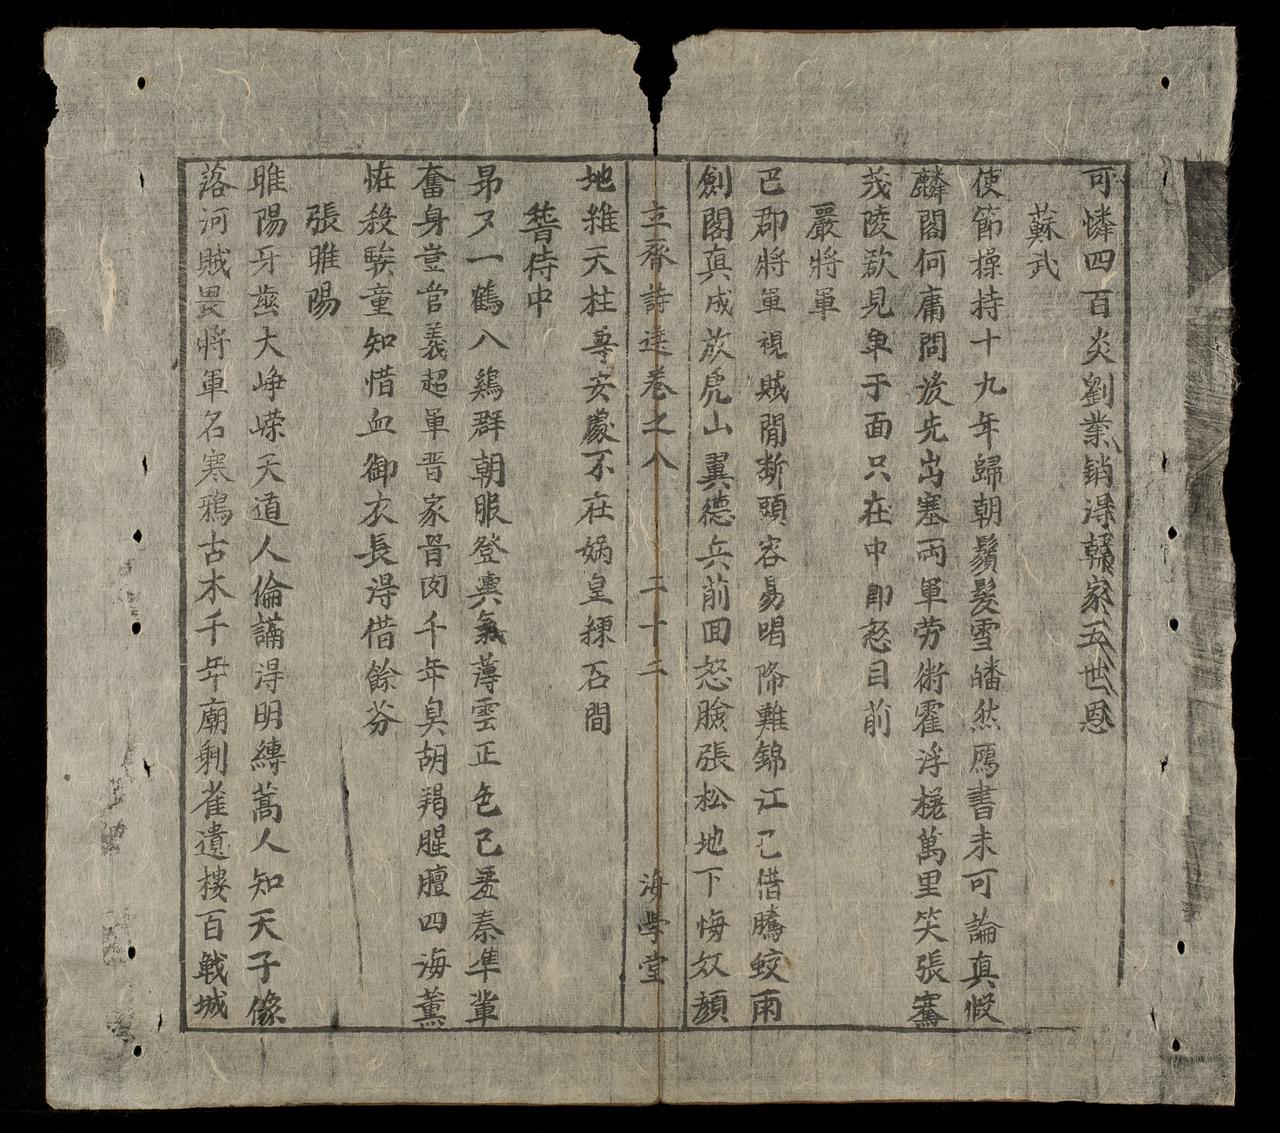 可憐四百炎劉業銷得韓家五世恩
蘇武
使節操持十九年歸朝鬚髮雪皤然鴈書未可論真假
麟閣何庸問後先出塞兩軍劳衛霍浮槎萬里笑張騫
茂陵欲見單于面只在中郎怒目前
嚴將軍
巴郡將軍視賊閒斷頭容易唱降難錦江已借騰蛟雨
劍閣真成放虎山翼德兵前回怒臉張松地下悔奴顏
立齋詩選卷之八 二十二 海學堂
地維天柱尊安處不在媧皇鍊石間
嵆侍中
昻昻一鶴入鷄群朝服登輿氣薄雲正色已羞秦準輩
奮身豈啻義超軍晋家骨肉千年臭胡羯腥膻四海薰
恠殺騃童知惜血御衣長得借餘芬
張睢陽
睢陽牙齒大崢嶸天道人倫講得明縛蒿人知天子像
落河賊畏將軍名寒鴉古木千年廟剩雀遺樓百戰城